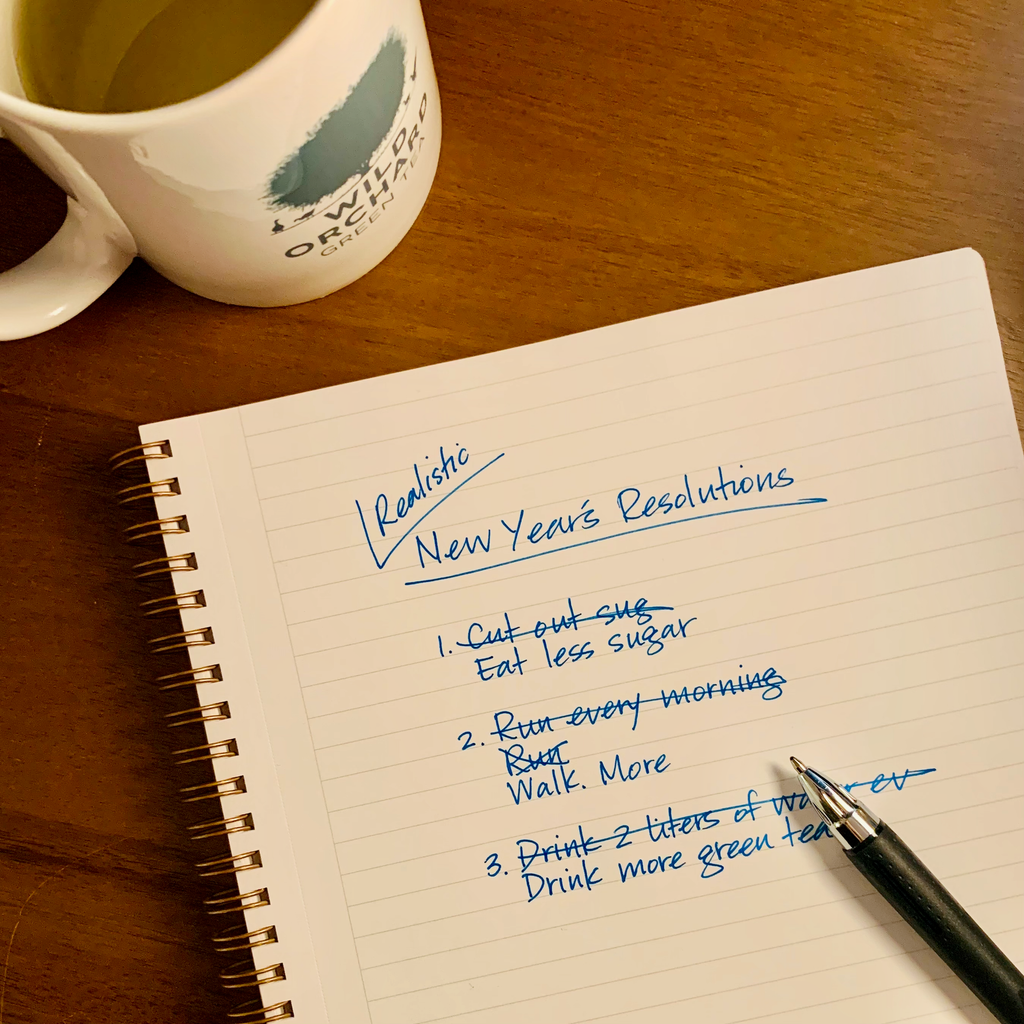 WILD
ORCHARD
GREEN TEA
Realistic
New Year's Resolutions
1. Cut out sug
Eat less sugar
2. Run every morning
Run
Walk. More
3. Drink 2 liters of water ev
Drink more green tea